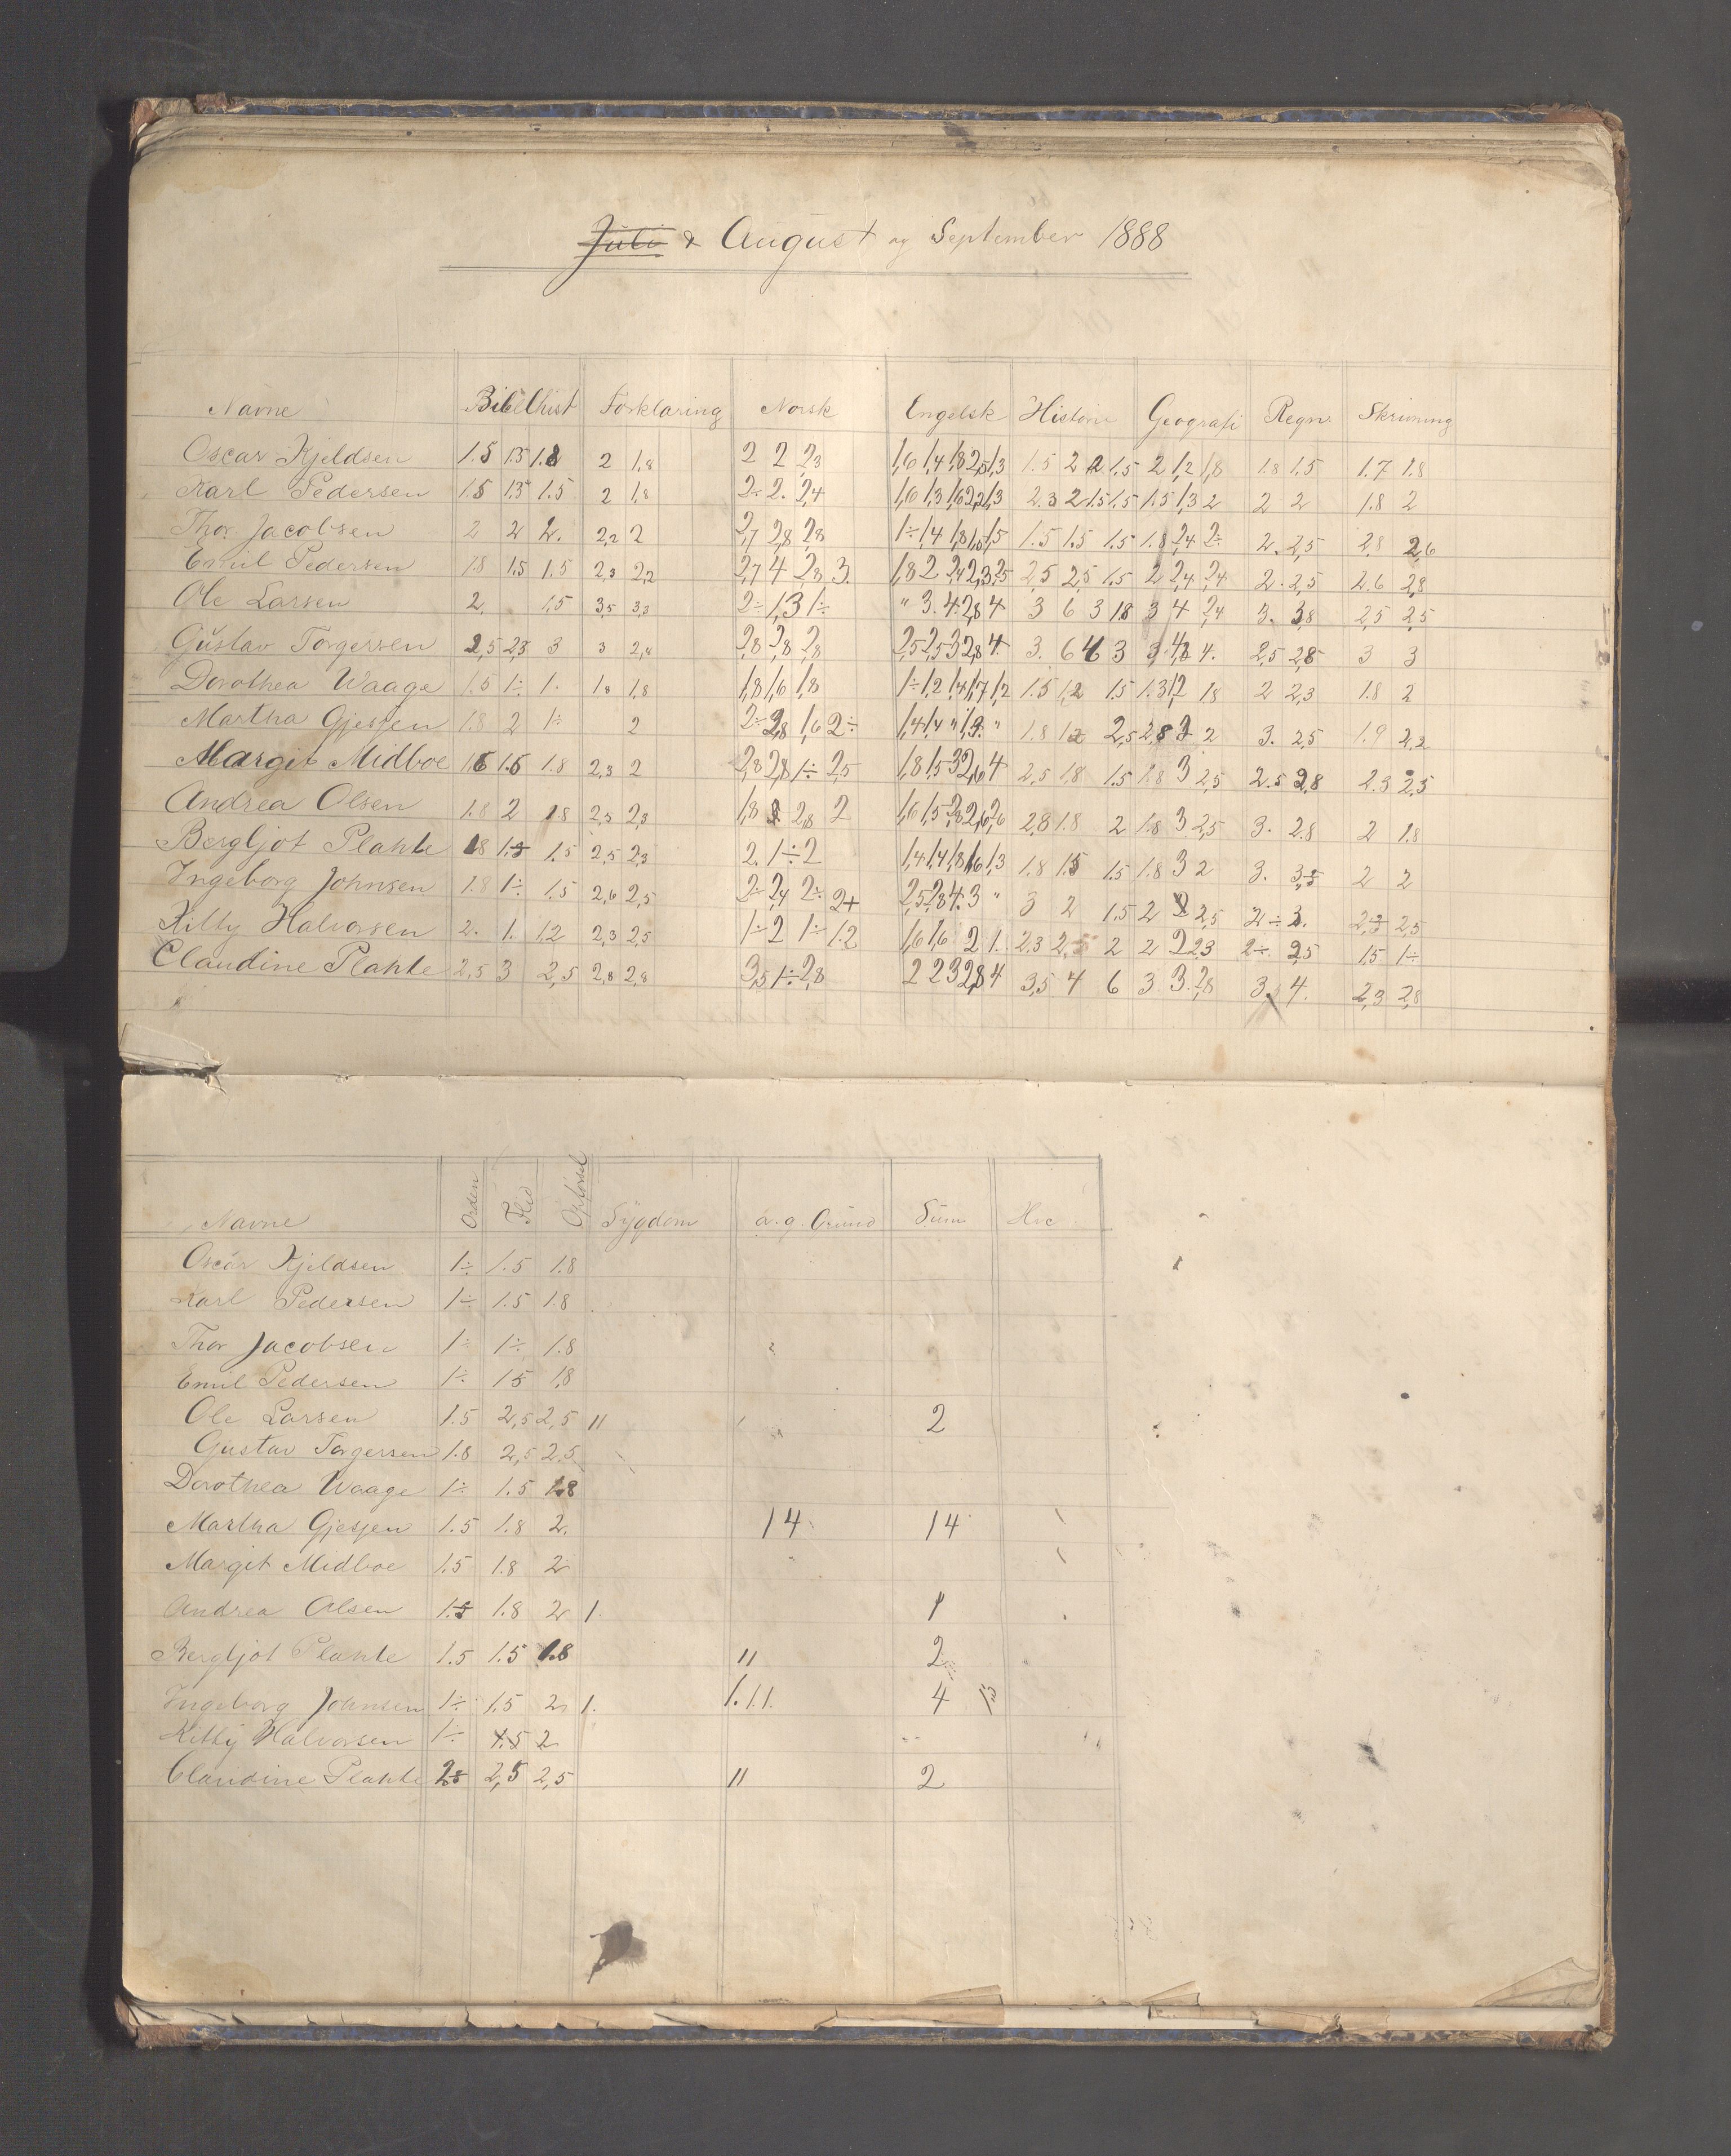 Juli & August og September 1888
Navne Bibelhist Forklaring Norsk Engelsk Historie Geografi Regn. Skrivning
Oscar Kjeldsen 1.5 1.5 1.8 2 1,8 2 2 2,3 1,6 1,4 1,8 2,5 1,3 1.5 2 2 1,5 2 1,2 1,8 1.8 1.5 1.7 1.8
Karl Pedersen 1.5 1.5 1.5 2 1,8 2÷ 2. 2,4 1,6 1,3 1,6 2,2 1,3 2.3 2 1.5 1.5 1.5 1,3 2 2 2 1.8 2
Thor Jacobsen 2 2 2. 2,2 2 2,7 2,8 2,8 1÷ 1,4 1,8 1,5 1,5 1.5 1.5 1.5 1.8 2,4 2÷ 2. 2,5 2,8 2,6
Emil Pedersen 1.8 1.5 1.5 2,3 2,2 2,7 4 2,8 3. 1,8 2 2,4 2,3 2,5 2,5 2,5 1.5 2 2,4 2,4 2. 2,5 2.6 2,8
Ole Larsen 2. 1,5 3,5 3,3 2÷ 1,3 1÷ " 3. 4. 2,8 4 3 6 3 1.8 3 4 2,4 3. 3,8 2,5 2,5
Gustav Torgersen 2,5 2,3 3 3 2,4 2,8 2,8 2,8 2,5 2,5 3 2,8 4. 3. 6 4 3 3. 4,8 4. 2,5 2,8 3 3
Dorothea Waage 1.5 1÷ 1. 1,8 1,8 1,8 1,6 1,8 1÷ 1,2 1,4 1,7 1,2 1.5 1,2 1.5 1.3 1,2 1.8 2 2,3 1.8 2
Martha Gjesjen 1.8 2 1÷ 2 2÷ 2,8 1,6 2÷ 1,4 1,4 " 1,9. " 1.8 1.2 2,5 2,8 3 2 3. 2,5 1.9 2,2
Margit Midboe 1.5 1.5 1.8 2,3 2 2,8 2,8 1÷ 2,5 1,8 1,5 3 2,6 4 2,5 1.8 1.5 1.8 3 2,5 2.5 2,8 2.3 2,5
Andrea Olsen 1.8 2 1.8 2,3 2,3 1,8 2 2,8 2 1,6 1,5 2,8 2,6 2,6 2,8 1.8 2 1.8 3 2,5 3. 2.8 2 1.8
Bergljot Plahte 1.8 1.5 1.5 2,5 2,3 2. 1÷ 2 1,4 1,4 1,8 1,6 1,3 1.8 1.5 1.5 1.8 3 2 3. 3,5 2 2
Ingeborg Johnsen 1.8 1÷ 1.5 2,6 2,5 2÷ 2,4 2÷ 2+ 2,5 2,8 4. 3 " 3 2 1.5 2 2 2,5 2÷ 3. 2,3 2,5
Kitty Halvorsen 2. 1. 1,2 2,3 2,5 1÷ 2 1÷ 1.2 1,6 1,6 2 1. 2.3 2,5 2 2 2 2,3 2÷ 2,5 1.5 1÷
Claudine Plahte 2,5 3 2,5 2,8 2,8 3,5 1÷ 2,8 2 2 3 2,8 4 3,5 4 6 3 3. 2,8 3,5 4. 2,3 2,8
Navne Orden Flid Opførsel Sygdom a. g. Grund Sum Hvc
Oscar Kjeldsen 1÷ 1.5 1.8
Karl Pedersen 1÷ 1.5 1.8
Thor Jacobsen 1÷ 1÷ 1.8
Emil Pedersen 1÷ 1.5 1,8
Ole Larsen 1.5 2,5 2,5 11 2
Gustav Torgersen 1.8 2,5 2.5
Dorothea Waage 1÷ 1.5 1.8
Martha Gjesjen 1.5 1.8 2. 14 14
Margit Midboe 1.5 1.8 2
Andrea Olsen 1.5 1.8 2 1. 1
Bergljot Plahte 1.5 1.5 1.8 11 2
Ingeborg Johnsen 1÷ 1.5 2 1. 1.1.1. 4
Kitty Halvorsen 1÷ 1.5 2
Claudine Plahte 2,5 2,5 11 2